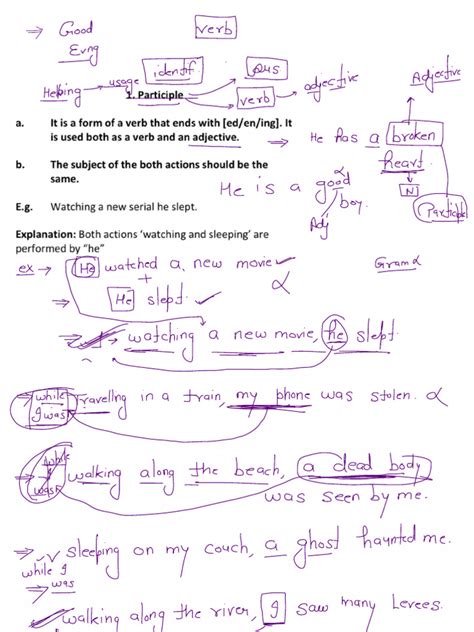 ⇒ Good Evng
verb
Helping → usage
identif.
pus
verb
adjective
Adjective
1. Participle
a. It is a form of a verb that ends with [ed/en/ing]. It
is used both as a verb and an adjective.
⇒ He has a broken
heart.
N
Participle
b. The subject of the both actions should be the
same.
He is a good boy.
Adj
E.g. Watching a new serial he slept.
Explanation: Both actions ‘watching and sleeping’ are
performed by “he”
ex → He watched a new movie ✓
Gram α
+
⇒ He slept. ✓
α
⇒ watching a new movie, he slept.
⇒ while I was Travelling in a train, my phone was stolen. α
⇒ while I was walking along the beach, a dead body
was seen by me.
⇒ sleeping on my couch, a ghost haunted me.
while I
⇒ was
walking along the river, I saw many Levees.